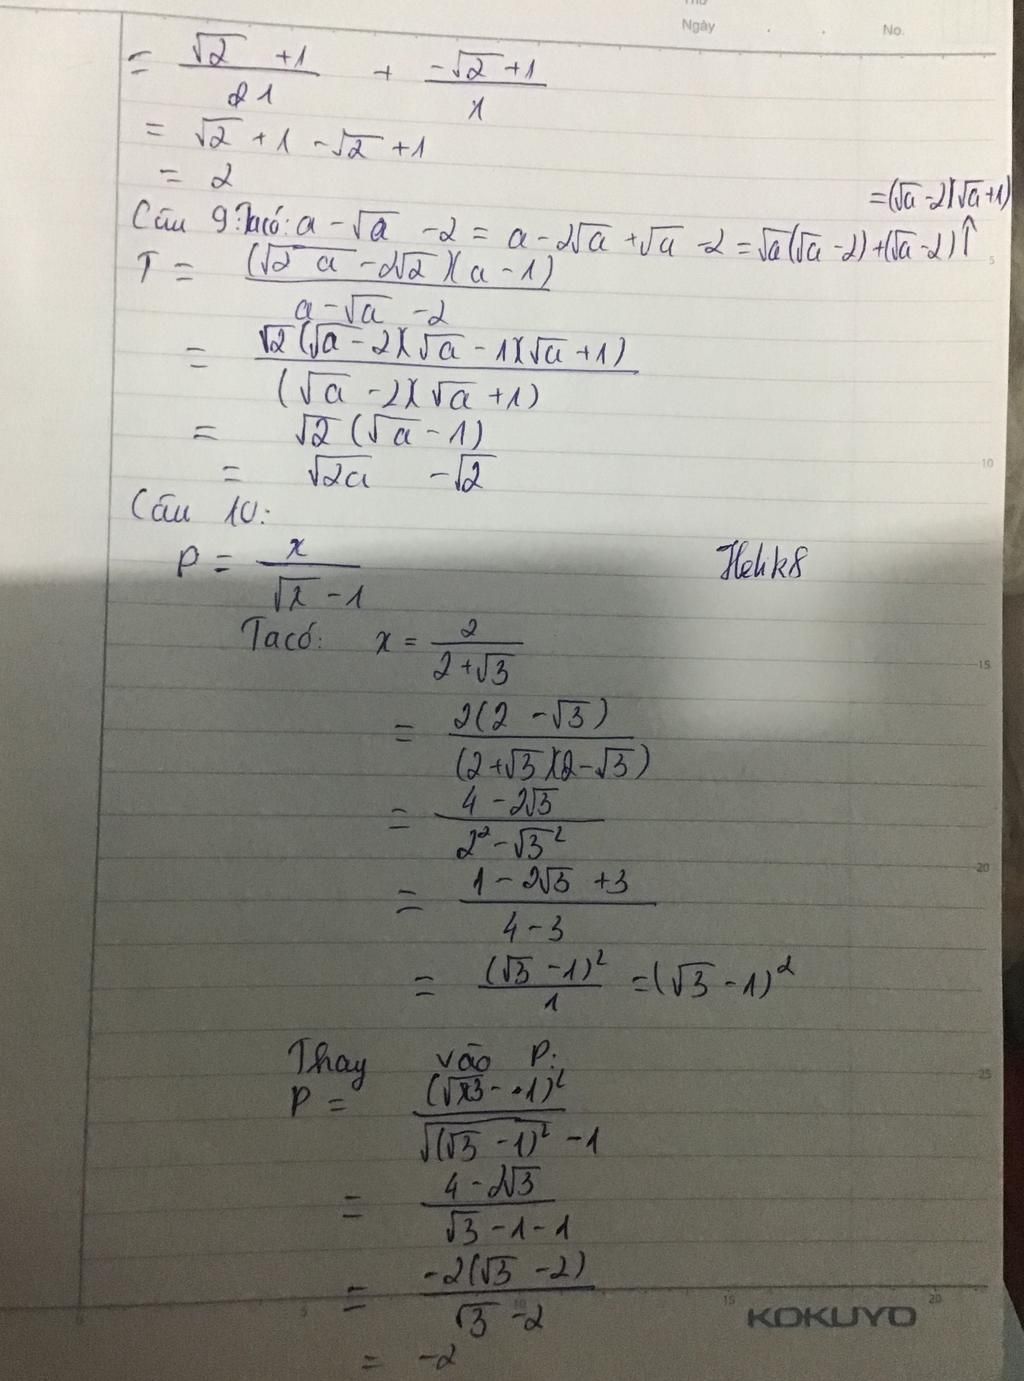 Ngày No.
= (√2 + 1)/21 + (-√2 + 1)/1
= √2 + 1 - √2 + 1
= 2
= (√a - 2)(√a + 1)
Câu 9: Ta có: a - √a - 2 = a - 2√a + √a - 2 = √a(√a - 2) + (√a - 2) ↑
T = (√2 a - 2√2)(a - 1) / (a - √a - 2)
= √2(√a - 2)(√a - 1)(√a + 1) / (√a - 2)(√a + 1)
= √2(√a - 1)
= √2a - √2
Câu 10:
P = x / (√x - 1)
Ta có: x = 2 / (2 + √3)
= 2(2 - √3) / (2 + √3)(2 - √3)
= (4 - 2√3) / (2² - √3²)
= (1 - 2√3 + 3) / (4 - 3)
= (√3 - 1)² / 1 = (√3 - 1)²
Thay vào P:
P = (√3 - 1)² / (√(√3 - 1)² - 1)
= (4 - 2√3) / (√3 - 1 - 1)
= -2(√3 - 2) / (√3 - 2)
= -2
5
10
15
20
25
5 10 15 20
KOKUYO